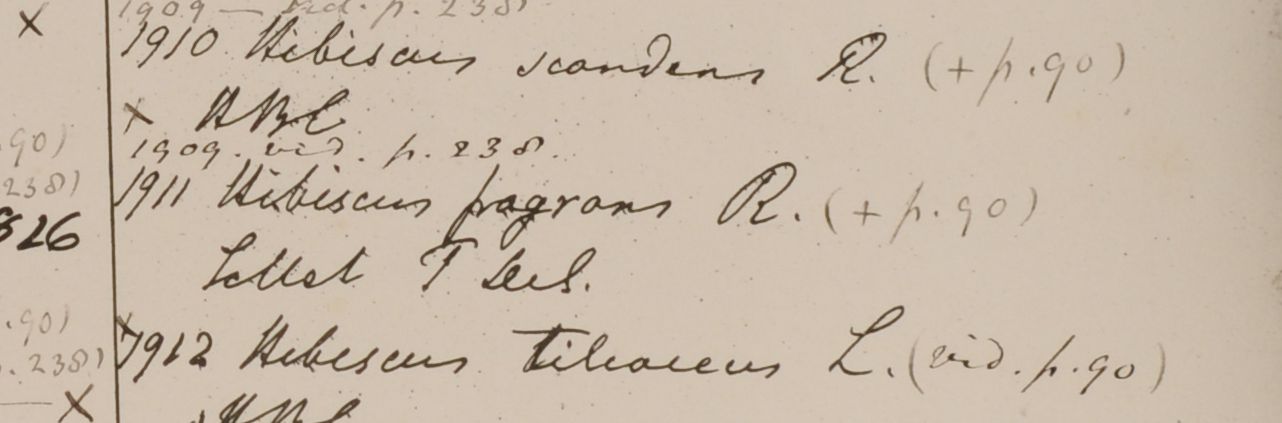 1909 — vid. p. 238
× 1910 Hibiscus scandens R. (+ p. 90)
× HBC
90) 1909. vid. p. 238.
238) 1911 Hibiscus fragrans R. (+ p. 90)
826
Sillet
.90) ×1912 Hibiscus tiliaceus L. (vid. p. 90)
. 238)
— × HBC